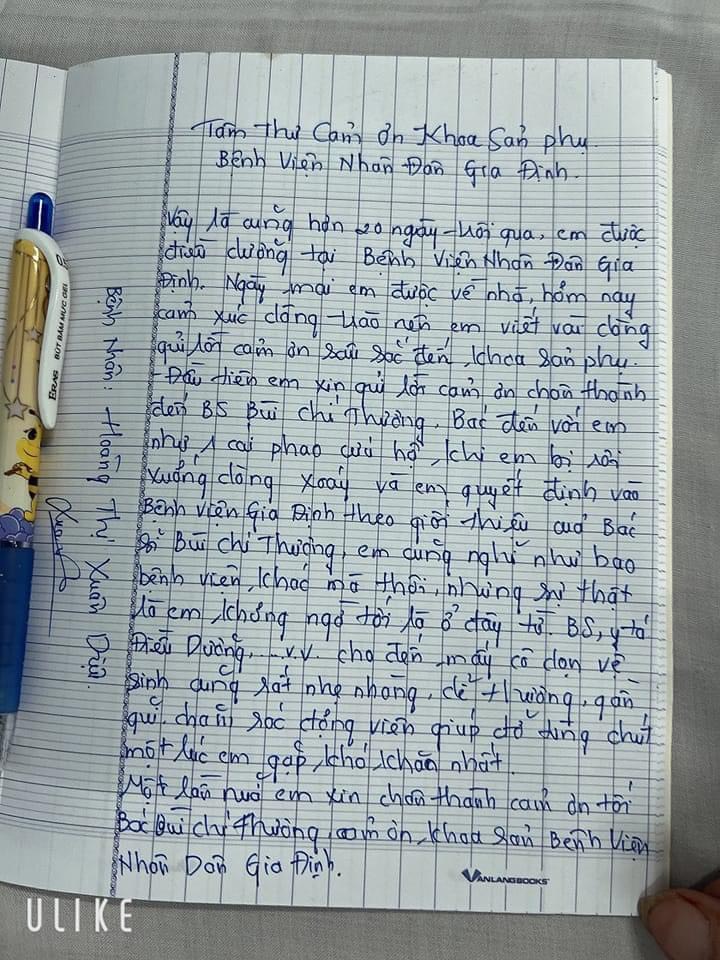 Tâm Thư Cảm Ơn Khoa Sản phụ.
Bệnh Viện Nhân Dân Gia Định.
Vậy là cũng hơn 20 ngày trôi qua, em được
điều dưỡng tại Bệnh Viện Nhân Dân Gia
Định. Ngày mai em được về nhà, hôm nay
cảm xúc dâng trào nên em viết vài dòng
gửi lời cảm ơn sâu sắc đến khoa sản phụ.
- Đầu tiên em xin gửi lời cảm ơn chân thành
đến BS Bùi Chí Thương. Bác đến với em
như 1 cái phao cứu hộ, khi em bị rơi
xuống dòng xoáy và em quyết định vào
Bệnh viện Gia Định theo giới thiệu của Bác
Sĩ Bùi Chí Thương, em cũng nghĩ như bao
bệnh viện khác mà thôi, nhưng sự thật
là em không ngờ tới là ở đây từ BS, y tá
Điều Dưỡng, ...v.v. cho đến mấy cô dọn vệ
sinh cũng rất nhẹ nhàng, dễ thương, gần
gũi, chăm sóc động viên giúp đỡ từng chút
một lúc em gặp khó khăn nhất.
Một lần nữa em xin chân thành cảm ơn tới
Bác Bùi Chí Thương, cảm ơn khoa sản Bệnh Viện
Nhân Dân Gia Định.
Bệnh Nhân: Hoàng Thị Xuân Diệu.
VANLANGBOOKS
BÚT BẤM MỰC GEL
ULIKE